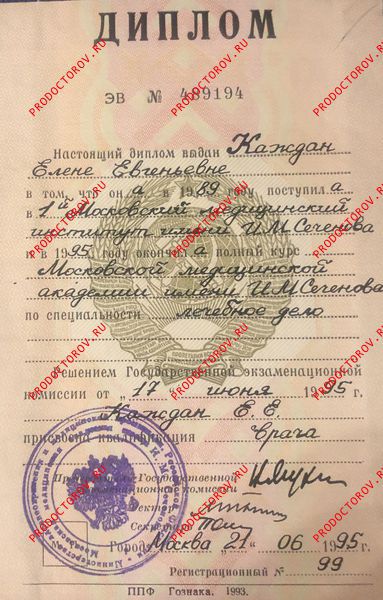 ДИПЛОМ
ЭВ № 489194
Настоящий диплом выдан Каждан
Елене Евгеньевне
в том, что он а в 1989 году поступил а
в 1й Московский медицинский
институт имени И.М. Сеченова
и в 1995 году окончил а полный курс
Московской медицинской
академии имени И.М. Сеченова
по специальности лечебное дело
Решением Государственной экзаменационной
комиссии от " 17 " июня 1995 г.
Каждан Е. Е.
присвоена квалификация врача
Председатель Государственной
экзаменационной комиссии
Ректор
Секретарь
Город Москва " 21 " 06 1995 г.
Регистрационный № 99
ППФ Гознака. 1993.
PRODOCTOROV.RU